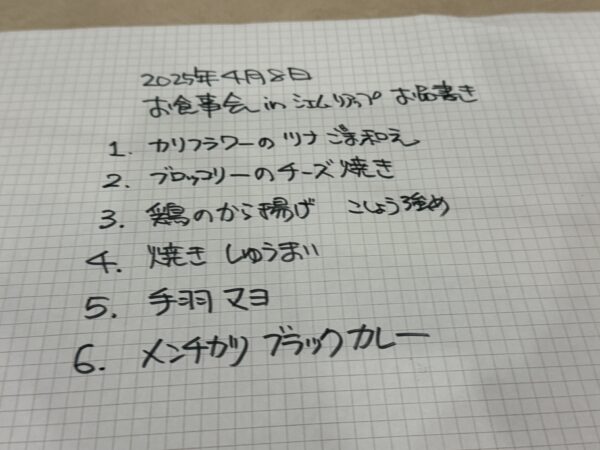 2025年4月8日
お食事会 in シェムリアップ お品書き
1. カリフラワーのツナごま和え
2. ブロッコリーのチーズ焼き
3. 鶏のから揚げ こしょう強め
4. 焼きしゅうまい
5. 手羽マヨ
6. メンチカツ ブラックカレー